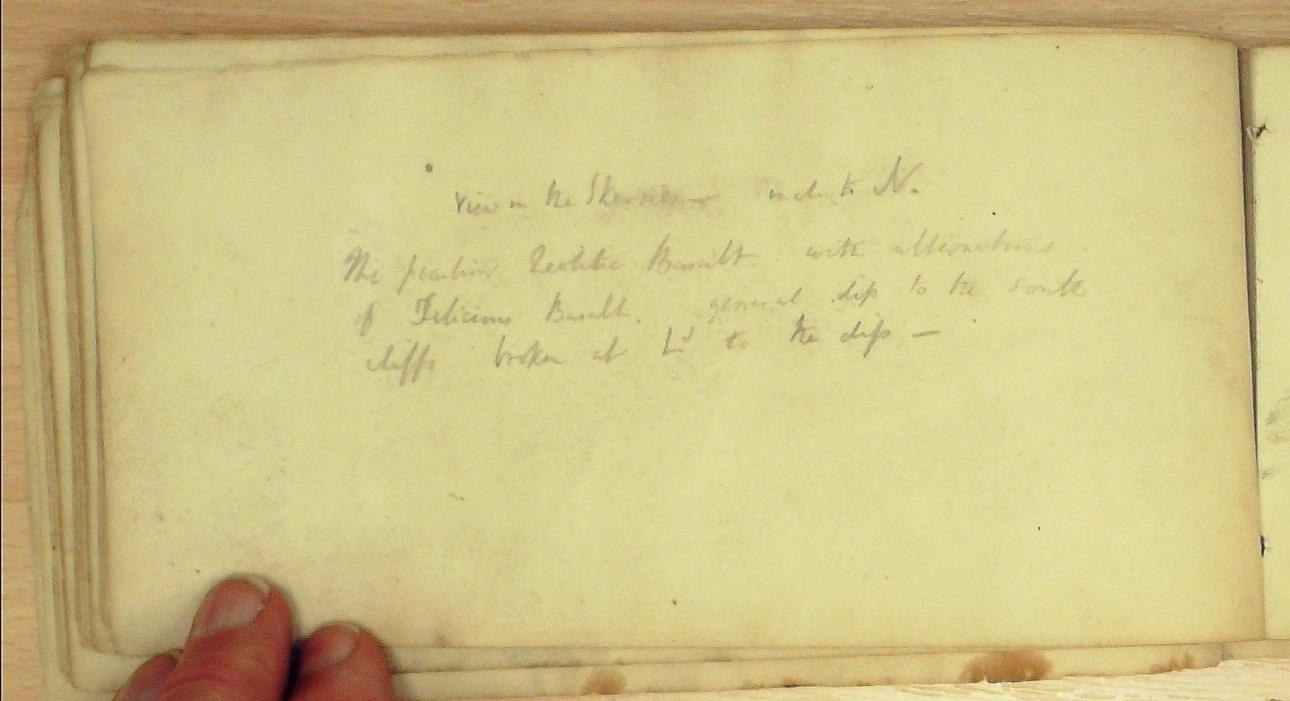 View in the Skerries — to N.
The peculiar Zeolitic Basalt. with alternations
of Basalt. general dip to the south
cliffs broken at to the dip —